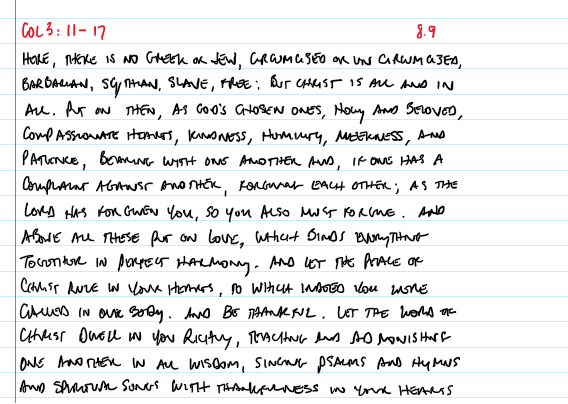 COL 3: 11-17 8.9
HERE, THERE IS NO GREEK OR JEW, CIRCUMCISED OR UNCIRCUMCISED,
BARBARIAN, SCYTHIAN, SLAVE, FREE; BUT CHRIST IS ALL AND IN
ALL. PUT ON THEN, AS GOD'S CHOSEN ONES, HOLY AND BELOVED,
COMPASSIONATE HEARTS, KINDNESS, HUMILITY, MEEKNESS, AND
PATIENCE, BEARING WITH ONE ANOTHER AND, IF ONE HAS A
COMPLAINT AGAINST ANOTHER, FORGIVING EACH OTHER; AS THE
LORD HAS FORGIVEN YOU, SO YOU ALSO MUST FORGIVE. AND
ABOVE ALL THESE PUT ON LOVE, WHICH BINDS EVERYTHING
TOGETHER IN PERFECT HARMONY. AND LET THE PEACE OF
CHRIST RULE IN YOUR HEARTS, TO WHICH INDEED YOU WERE
CALLED IN ONE BODY. AND BE THANKFUL. LET THE WORD OF
CHRIST DWELL IN YOU RICHLY, TEACHING AND ADMONISHING
ONE ANOTHER IN ALL WISDOM, SINGING PSALMS AND HYMNS
AND SPIRITUAL SONGS WITH THANKFULNESS IN YOUR HEARTS